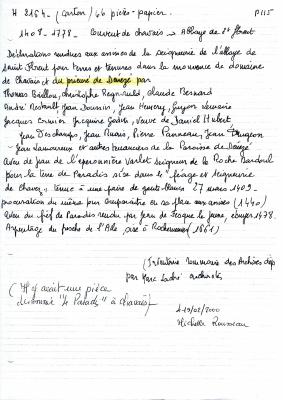 H 2164 - (Carton) 46 pièces - papier. P115
1408-1778 - Couvent de Chavais → Abbaye de St Florent
Déclarations rendues aux assises de la Seigneurie de l'abbaye de
Saint Florent pour terres et tenures dans la mouvance du domaine
de Chavais et du prieuré de Denezé par
Thomas Brillon, christophe Regnauld, claude Bernard
André Jean Jean Guyon Lemoine
Jacques Cornier Jacquine Godin, veuve de Daniel Hubert
Jean Deschamps, Jean Pierre Panneau, Jean
Jean Lamoureux et autres nuances de la Paroisse de Denezé
Aveu de Jean de l'Eperonnière Varlet Seigneur de la Roche Bardoul
pour la terre de Paradis sise dans le "fiage et seigneurie
de Chavez, tenue à une paire de gants blancs 27 mars 1409 -
procuration du même pour comparaître en sa place aux assises (1440)
Aveu du fief de Paradis rendu par Jean de le jeune, écuyer 1478.
Arpentage du proche de l'Ale, sise à Rochemenier (1661)
(Inventaire sommaire des Archives dép
par Marc Saché archiviste
(Il y avait une pièce
dénommée "le Paradis" à chavais)
le 19/02/2000
Michelle Rousseau